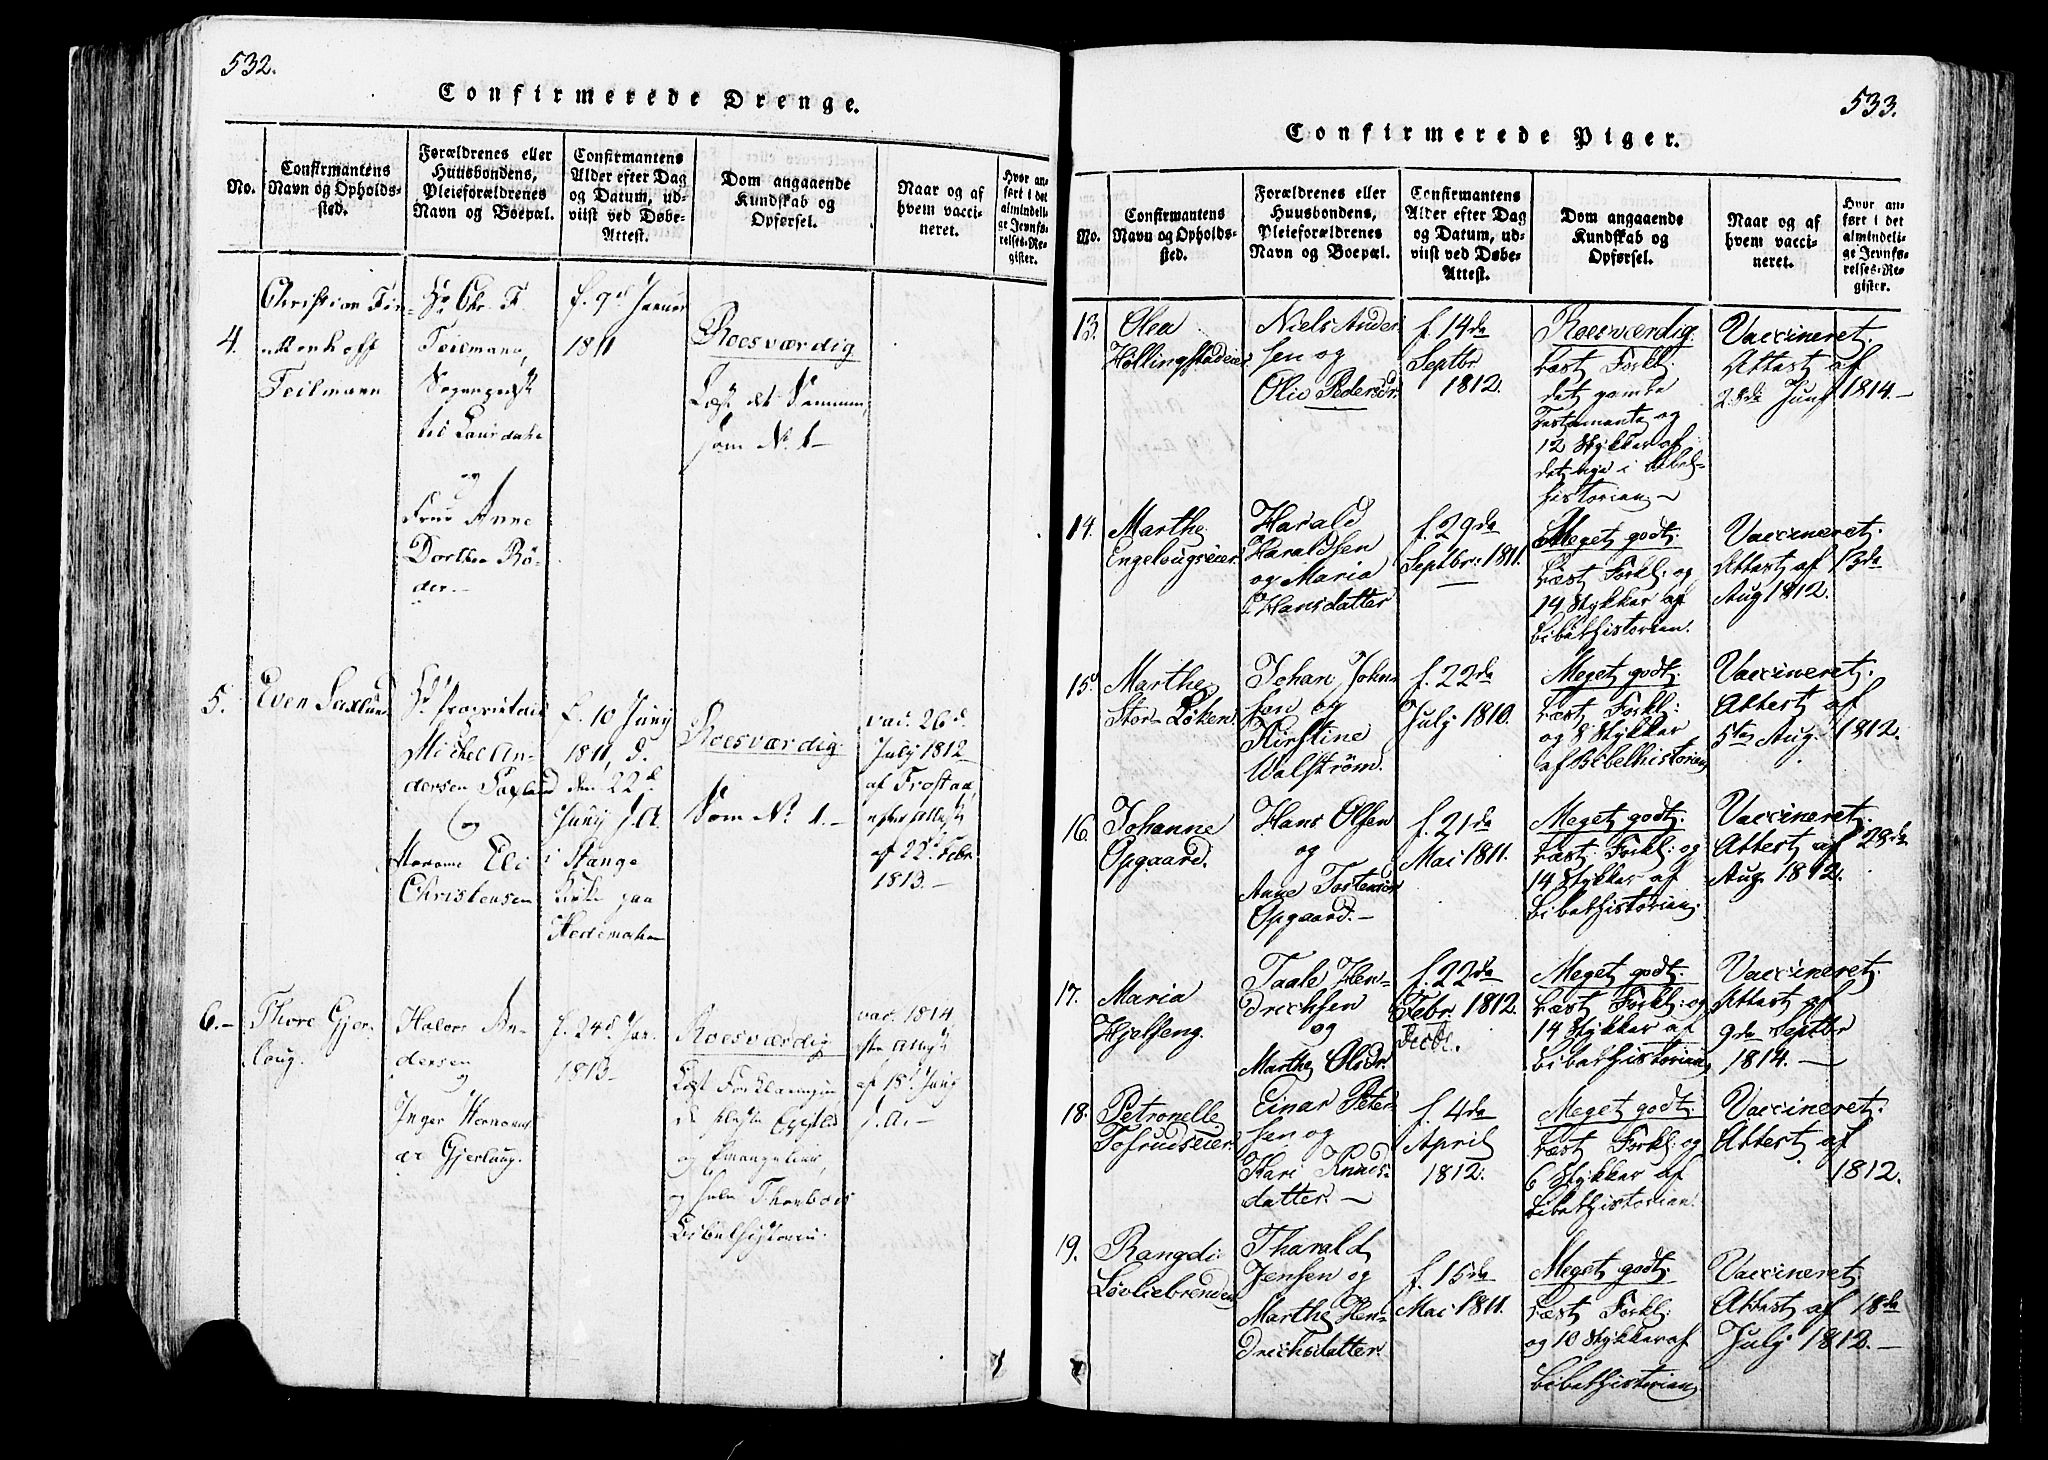 532.
Confirmerede Drenge.
No.
Confirmantens
Navn og Opholds-
sted.
Forældrenes eller
Huusbondens,
Pleieforældrenes
Navn og Boepæl.
Confirmantens
Alder efter Dag
og Datum, ud-
viist ved Døbe-
Attest.
Dom angaaende
Kundskab og
Opførsel.
Naar og af
hvem vacci-
neret.
Hvor an-
ført i det
almindeli-
ge Jevnfø-
relses-Re-
gister.
4.
Christian
Teilmann
Hr Chr. F.
Teilmann,
Sognepræst
til
og
Frue Anne
Dorthea Rö-
der.-
f. 9d Januar
1811
Roesværdig
Læst det Samme,
som No 1-
5.
Even Saxlund
Hr Proprietair
Michel An-
dersen Saxlund
og
Madame Eli
Christensen
f. 10 Juny
1811, d.
den 22d
Juny s. A.
i Stange
Kirke paa
Hedemarken
Roesværdig
Som No 1.-
vac. 26d
July 1812
af Frostad,
efter Attest
af 22d Febr.
1813.-
6.-
Thore Gjer-
loug.
Halvor An-
dersen
og
Inger
Gjerloug.
f. 24d Jan.
1813-
Roesværdig
Læst Forklaringen
og Evangelier,
og hele
Bibelhistorie.
vac. 1814,
efter Attest
af 18d Juny
s. A.-
533.
Confirmerede Piger.
No.
Confirmantens
Navn og Opholds-
sted.
Forældrenes eller
Huusbondens,
Pleieforældrenes
Navn og Boepæl.
Confirmantens
Alder efter Dag
og Datum, ud-
viist ved Døbe-
Attest.
Dom angaaende
Kundskab og
Opførsel.
Naar og af
hvem vacci-
neret.
Hvor an-
ført i det
almindeli-
ge Jevnfø-
relses-Re-
gister.
13.
Olea
Hollingstadeier
Niels Ander-
sen og
Olie Pedersdr.
f. 14de
Septbr
1812.
Roesværdig.
Læst Forkl:
det gamle
Testamente og
12 Stykker af
det nye i Bibel-
historien-
Vaccineret.
Attest af
28de Juny 1814.-
14.
Marthe
Engelougseier
Harald
Haraldsen
og Maria
Hansdatter
f. 29de
Septbr: 1811.
Meget godt.
Læst Forkl: og
14 Stykker af
Bibelhistorien.
Vaccineret.
Attest af 13de
Aug 1812.
15.
Marthe
Stor-Løken
Johan John-
sen og
Kirstine
Walstrøm.
f. 22de
July 1810.
Meget godt.
Læst Forkl:
og 8 Stykker
af Bibelhistorien
Vaccineret.
Attest af
5te Aug. 1812.
16.
Johanne
Opgaard.
Hans Olsen
og
Anne Tostensdr
Opgaard.-
f. 21de
Mai 1811.
Meget godt.
Læst Forkl: og
14 Stykker af
Bibelhistorien.
Vaccineret.
Attest af 28de
Aug 1812.
17.
Maria
Hjelseng.
Taale Hen-
drichsen
og
Marthe Olsdr.
f. 22de
Febr. 1812.
Meget godt.
Læst Forkl: og
14 Stykker af
Bibelhistorien
Vaccineret.
Attest af
9de Septbr
1814.-
18.
Petronelle
Tofsrudseier.
Einar Peter-
sen og
Kari Knuds-
datter.-
f. 4de
April
1812.
Meget godt.
Læst Forkl: og
6 Stykker af
Bibelhistorien.
Vaccineret.
Attest af
1812.
19.
Rangdi
Løvliebrenden
Tharald
Jensen og
Marthe Hen-
drichsdatter
f. 15de
Mai 1811.
Meget godt.
Læst Forkl:
og 10 Stykker af
Bibelhistorien
Vaccineret
Attest af 18de
July 1812.-